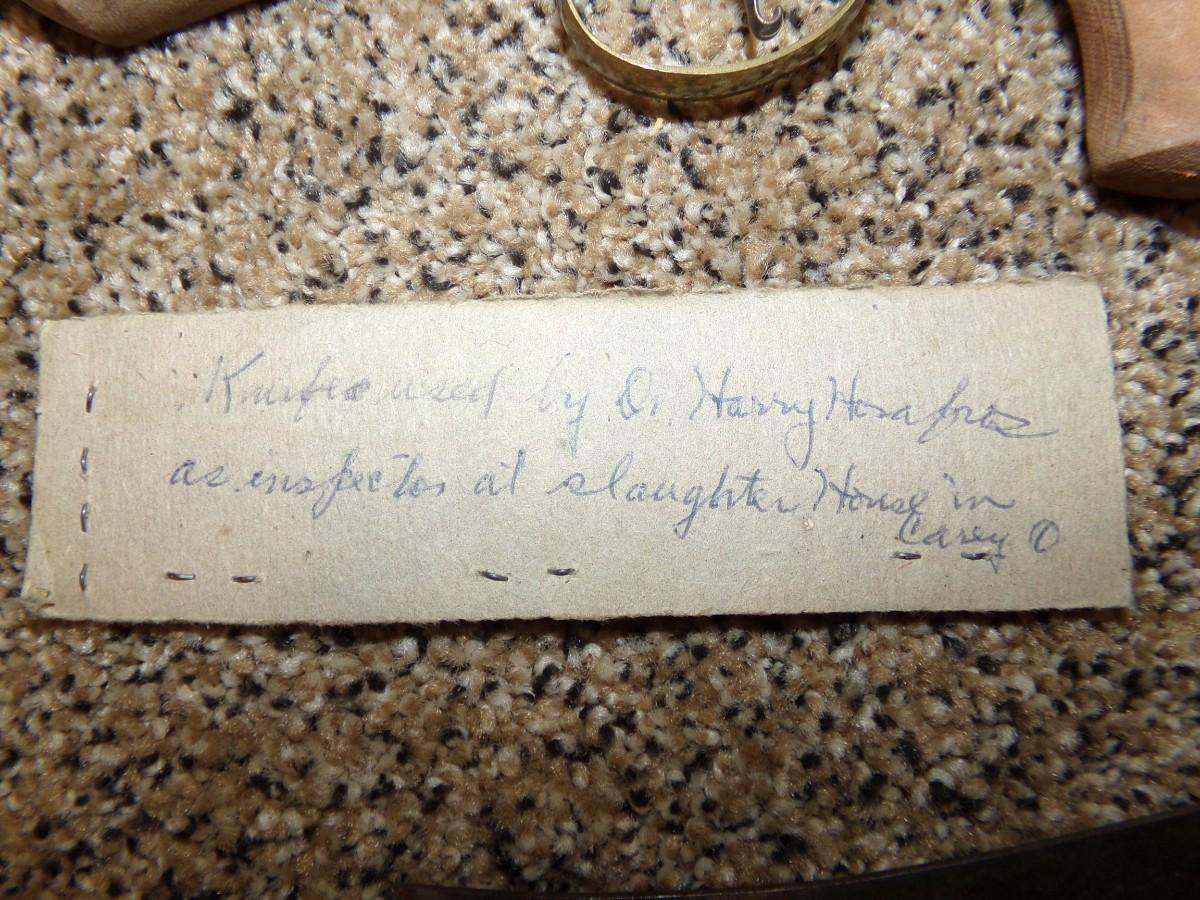 Knife used by Dr. Harry
as inspector at slaughter House in
Carey O